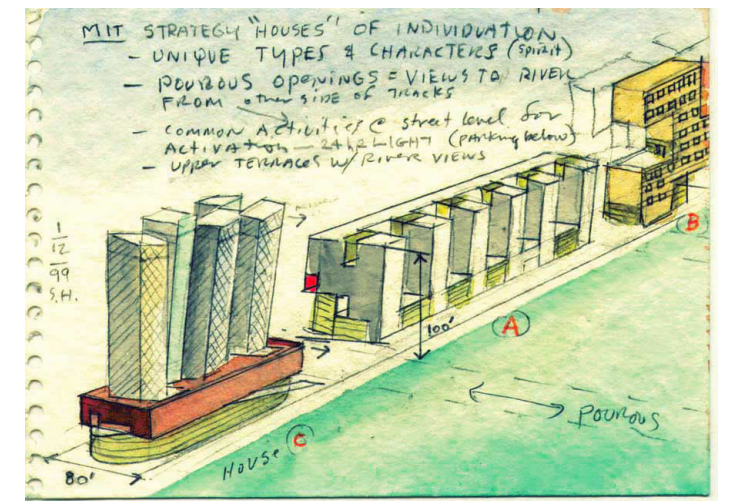 MIT STRATEGY "HOUSES" OF INDIVIDUATION
- UNIQUE TYPES & CHARACTERS (spirit)
- POUROUS OPENINGS = VIEWS TO RIVER
FROM other SIDE OF TRACKS
- COMMON ACTIVITIES @ street level for
ACTIVATION — 24 hR LIGHT (parking below)
- UPPER TERRACES W/ RIVER VIEWS
1
12
99
S.H.
B
100'
A
POUROUS
HOUSE C
80'